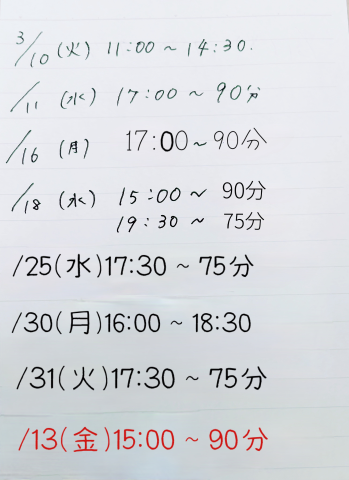 3/10(火) 11:00~14:30.
/11(水) 17:00~90分
/16(月) 17:00~90分
/18(水) 15:00~90分
19:30~75分
/25(水)17:30~75分
/30(月)16:00~18:30
/31(火)17:30~75分
/13(金)15:00~90分